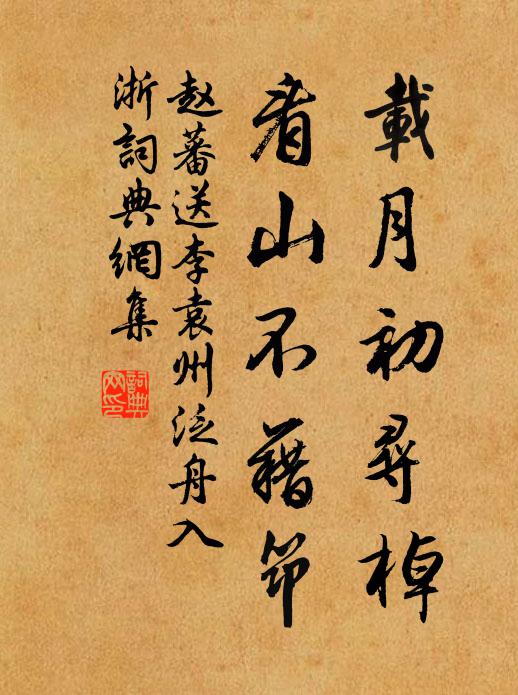 載月初尋棹
看山不藉筇
赵蕃送李袁州泛舟入
浙詞典網集
詞典網印